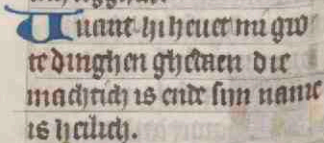 Want hi heuet mi gro
te dinghen ghedaen die
machtich is ende sijn name
is heilich.